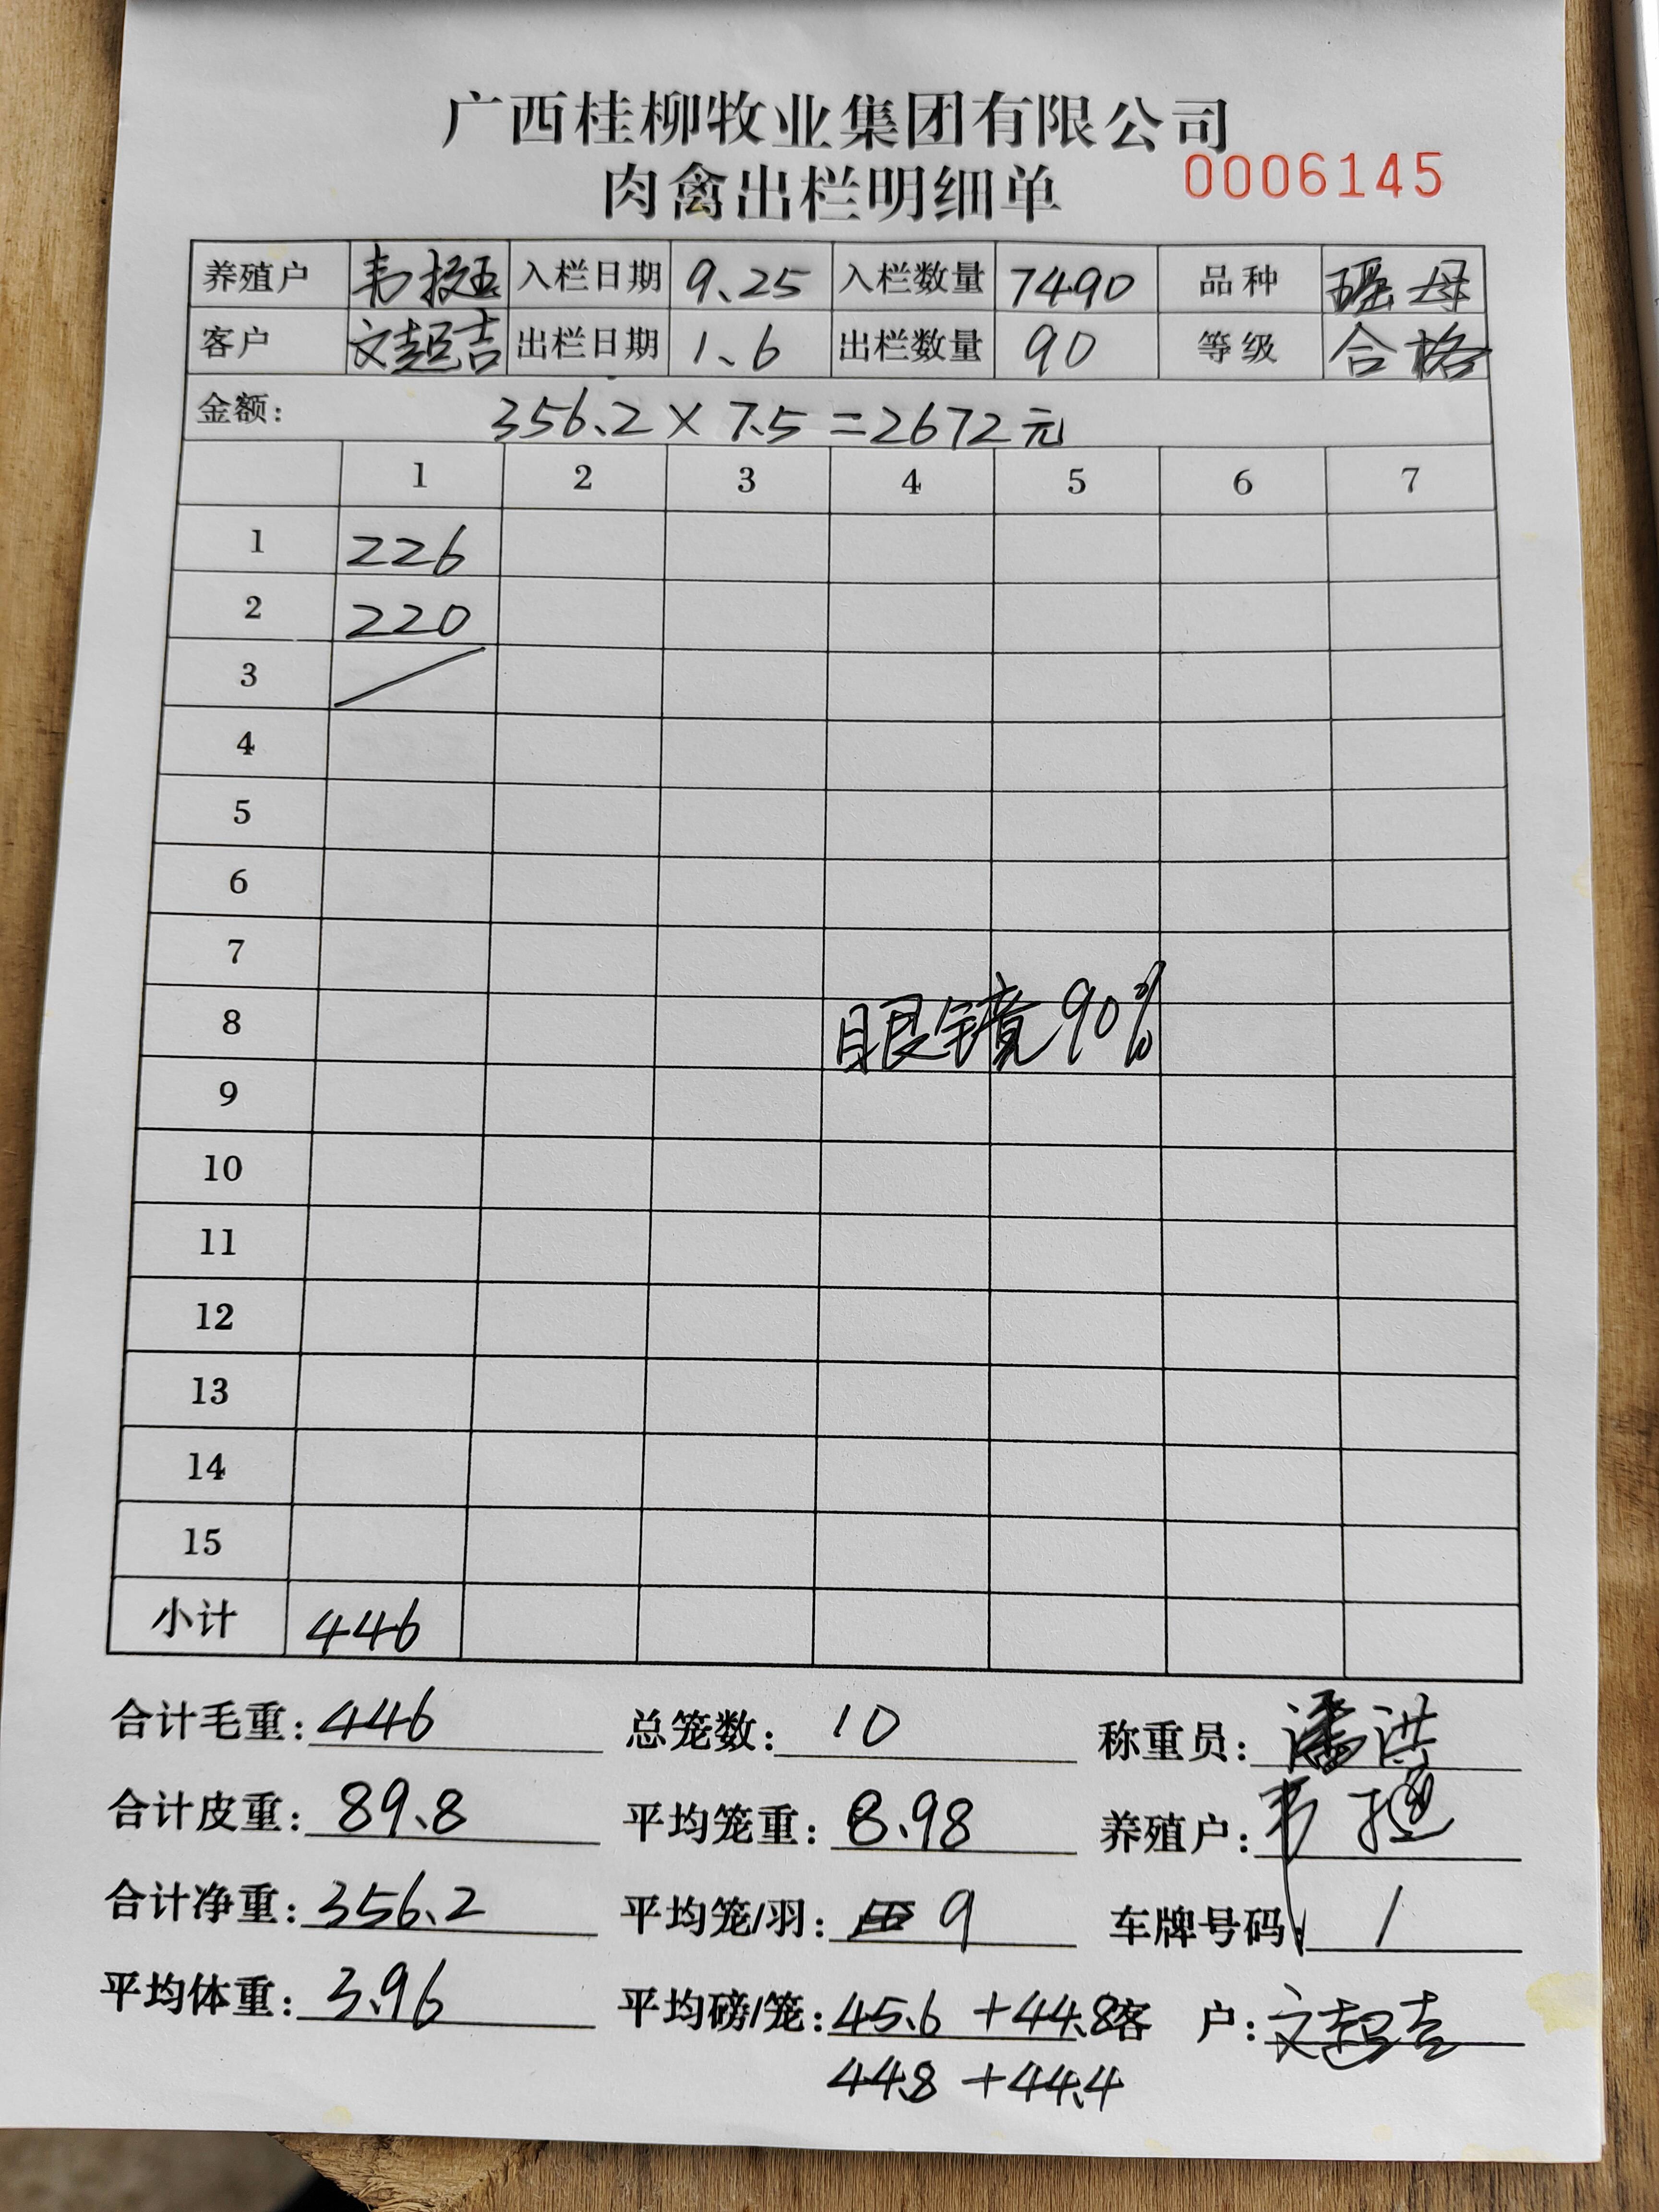 广西桂柳牧业集团有限公司
肉禽出栏明细单 0006145
养殖户 韦挺 入栏日期 9.25 入栏数量 7490 品种 瑶母
客户 文超吉 出栏日期 1.6 出栏数量 90 等级 合格
金额: 356.2 × 7.5 = 2672元
1 2 3 4 5 6 7
1 226
2 220
3 /
4
5
6
7
8 眼镜90%
9
10
11
12
13
14
15
小计 446
合计毛重: 446 总笼数: 10 称重员: 潘洪
合计皮重: 89.8 平均笼重: 8.98 养殖户: 韦挺
合计净重: 356.2 平均笼/羽: 9 车牌号码: /
平均体重: 3.96 平均磅/笼: 45.6 + 44.8 客 户: 文超吉
44.8 + 44.4